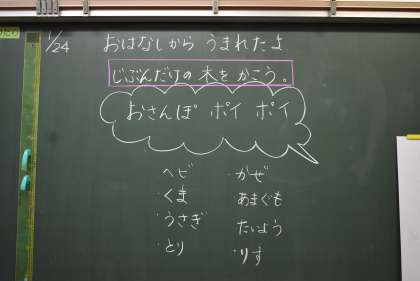 1/24
おはなしから うまれたよ
じぶんだけの木をかこう。
おさんぽ ポイ ポイ
・ヘビ
・くま
・うさぎ
・とり
・かぜ
・あまぐも
・たいよう
・りす